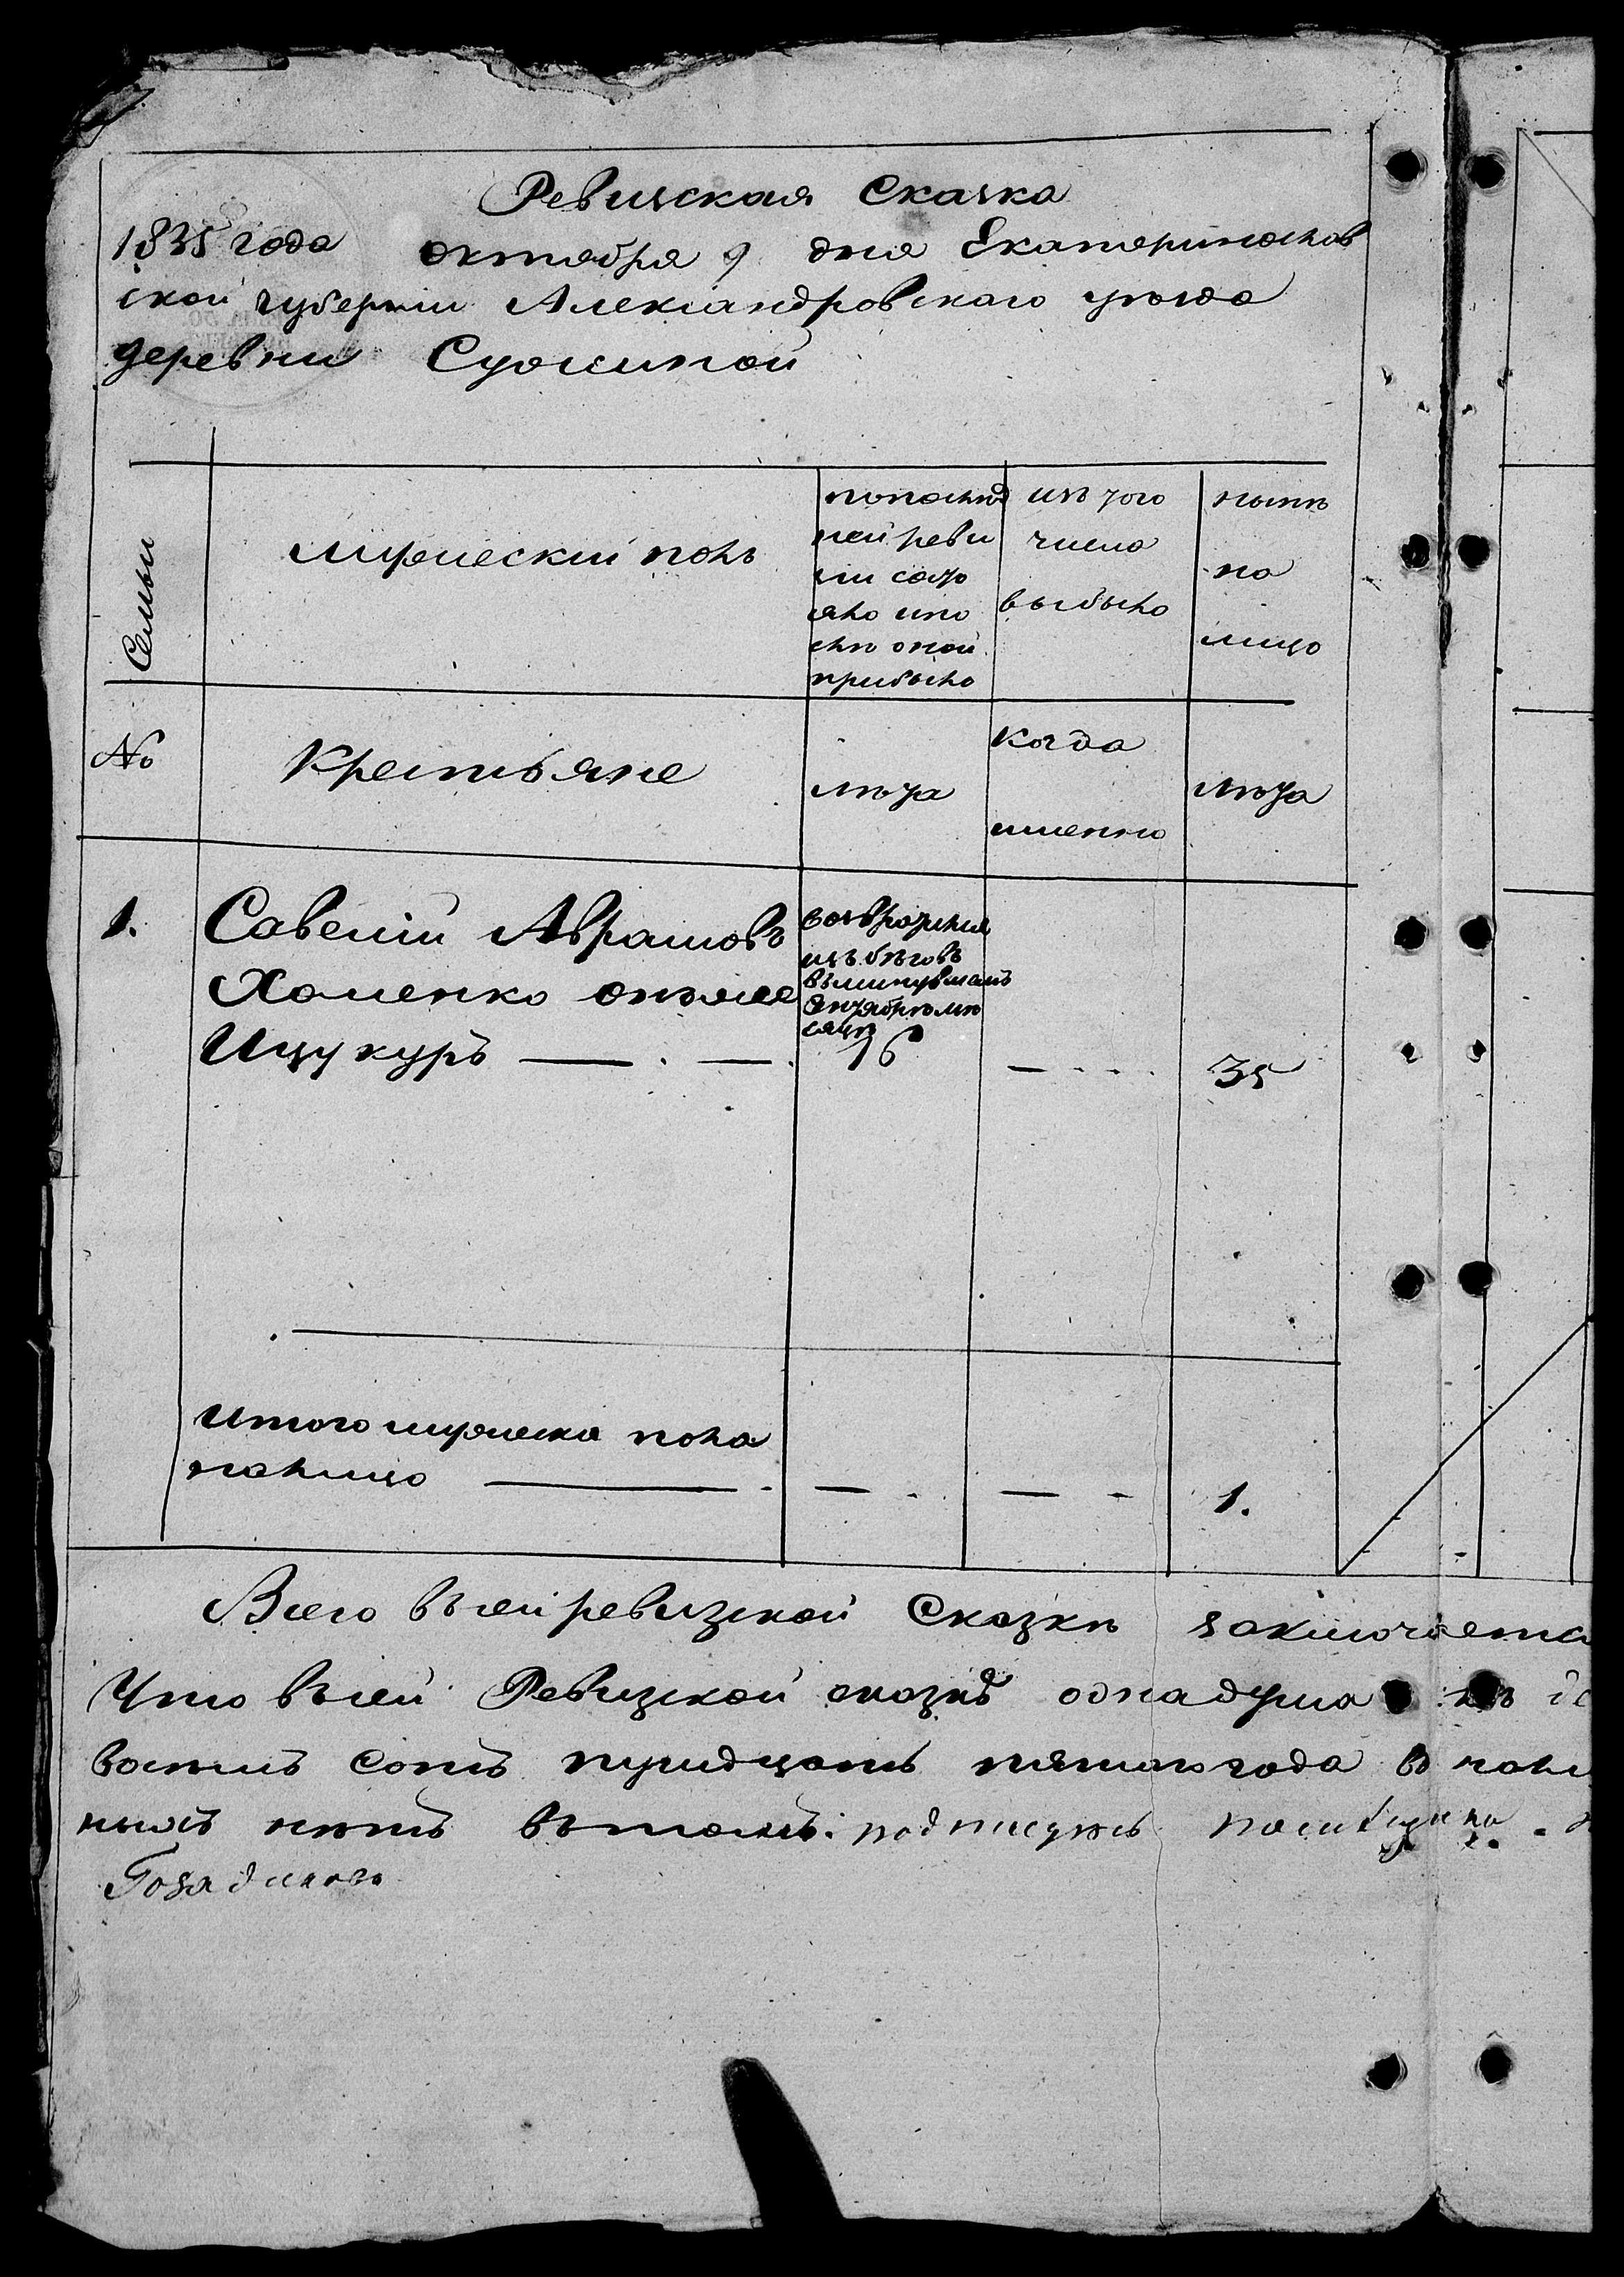 Ревизская Сказка
1835 года октября 9 дня Екатеринослав
ской губернии Александровского уезда
деревни
Семьи
мужеский полъ
попослед
ней реви
зии состо
яло ипо
слѣ оной
прибыло
изъ того
числа
выбыло
нынѣ
на
лицо
№
Крестьяне
лѣта
Когда
именно
лѣта
1.
Савелий Аврамовъ
Хоменко онъже
Ицукуръ
возвратился
изъ бѣговъ
Октябрѣ мѣ
сяцѣ
16
35
Итого мужеска пола
налицо
1.
Всего въсей ревизской Сказкѣ заключается
Что въсей Ревизской сказкѣ одна душа
восемь сотъ тридцать пятого года
нымъ нѣтъ въ томъ. подписуюсь